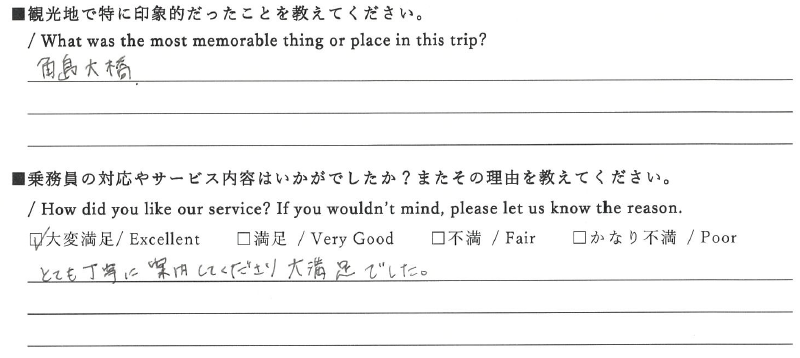 ■観光地で特に印象的だったことを教えてください。
/ What was the most memorable thing or place in this trip?
角島大橋.
■乗務員の対応やサービス内容はいかがでしたか？またその理由を教えてください。
/ How did you like our service? If you wouldn't mind, please let us know the reason.
☑大変満足/ Excellent □満足 / Very Good □不満 / Fair □かなり不満 / Poor
とても丁寧に案内してくださり大満足でした。